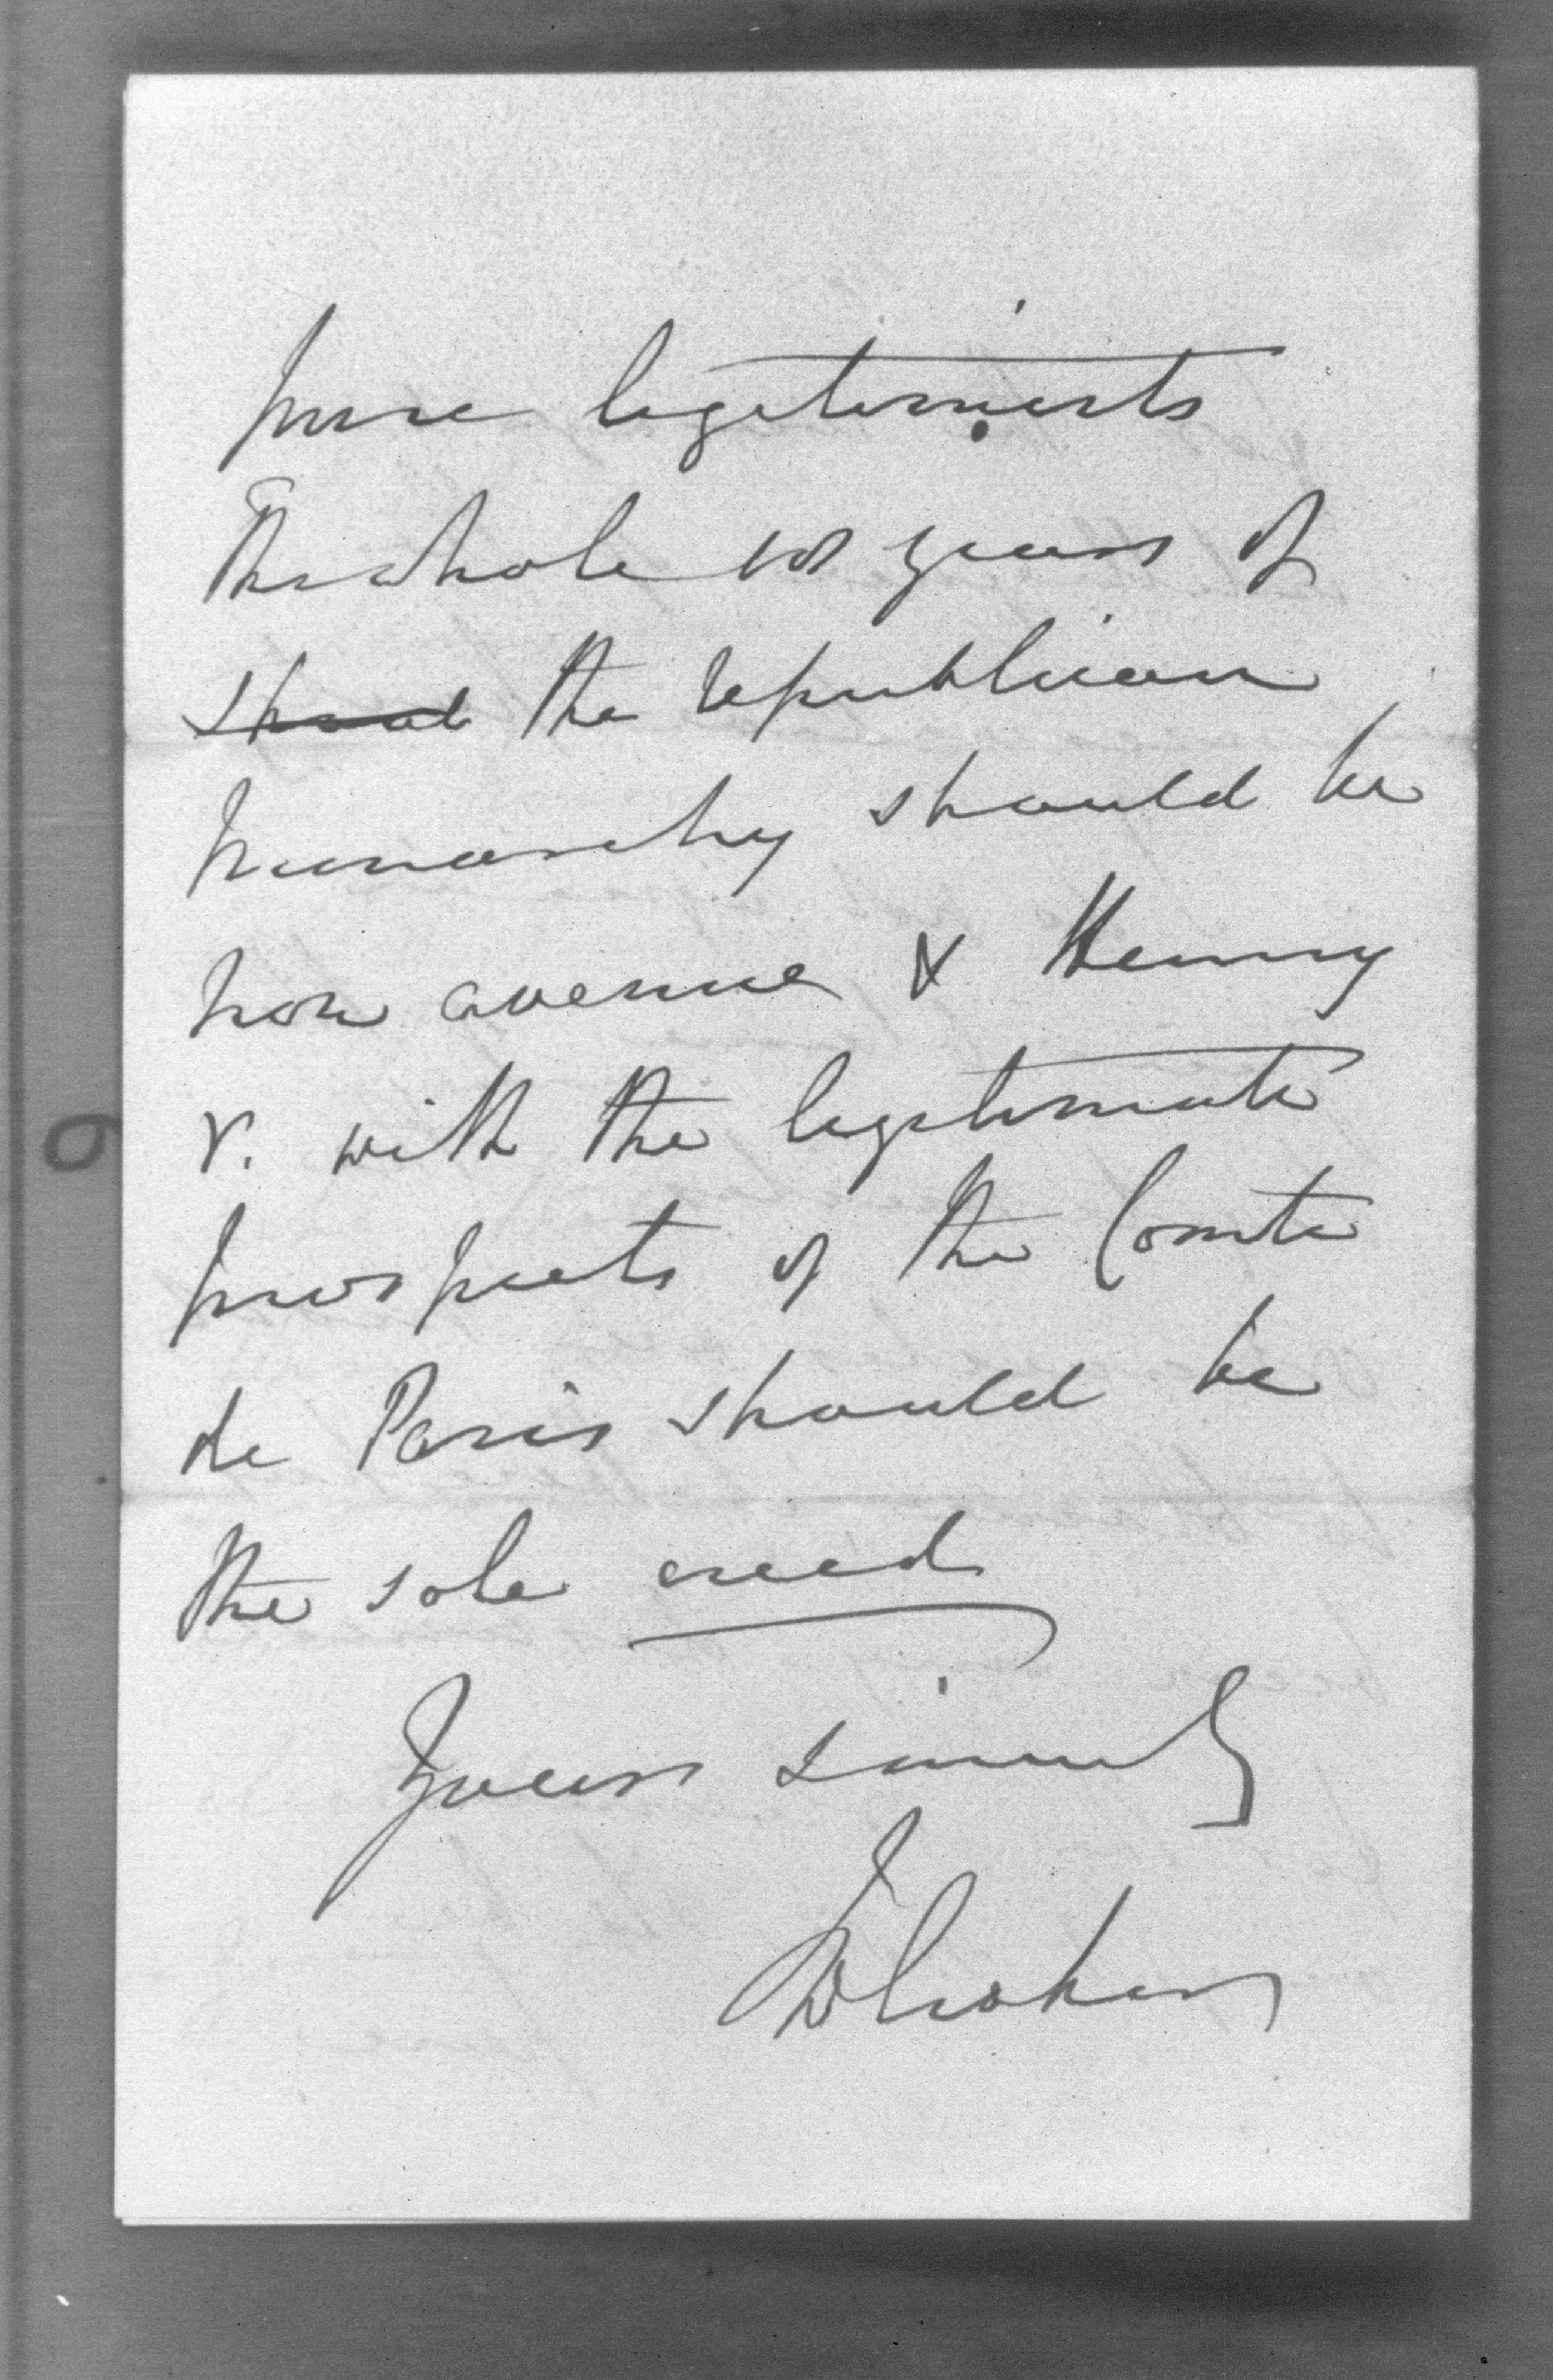 pure legitimists
The whole 18 years of
shoul the republican
monarchy should be
non avenue & Henry
V. with the legitimate
prospects of the Comte
de Paris should be
the sole creed
Yours sincerely